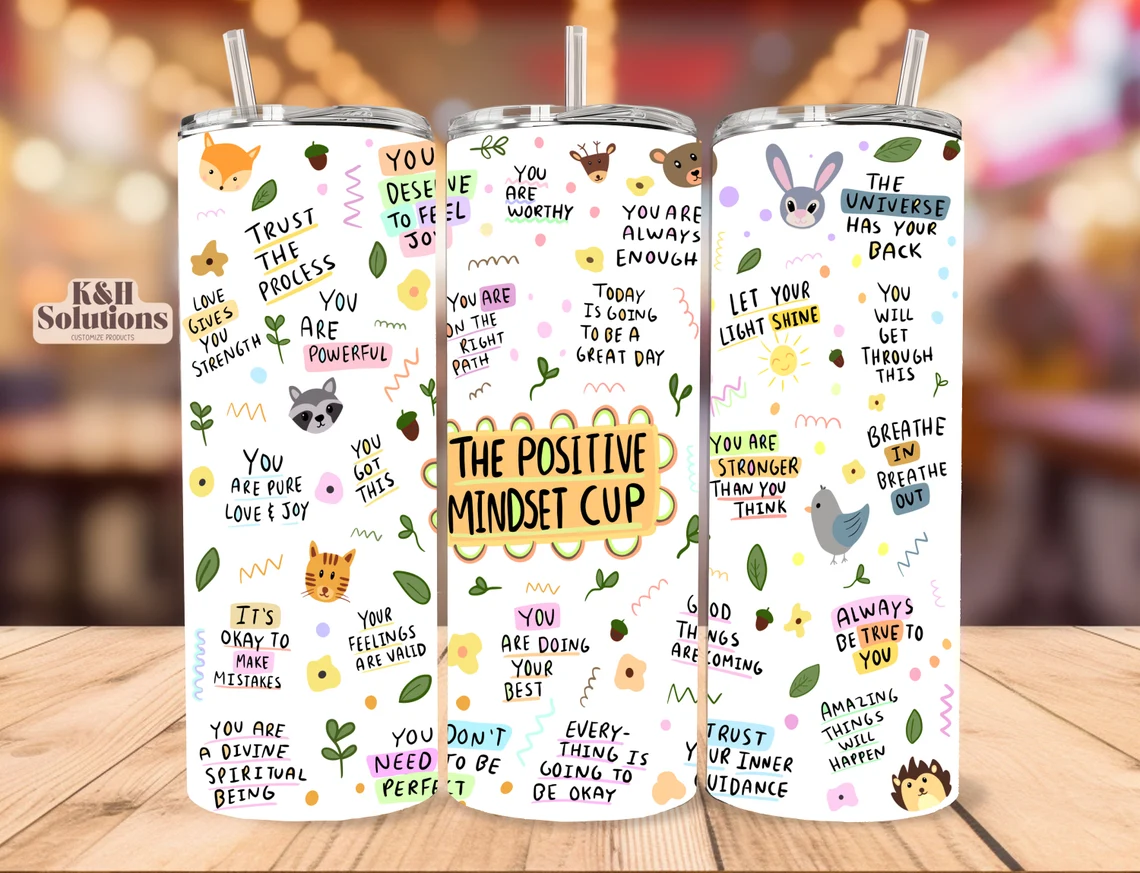 K&H
Solutions
CUSTOMIZE PRODUCTS
TRUST
THE
PROCESS
YOU
DESERVE
TO FEEL
JOY
LOVE
GIVES
YOU
STRENGTH
YOU
ARE
POWERFUL
YOU
ARE PURE
LOVE & JOY
YOU
GOT
THIS
IT'S
OKAY TO
MAKE
MISTAKES
YOUR
FEELINGS
ARE VALID
YOU ARE
A DIVINE
SPIRITUAL
BEING
YOU DON'T
NEED TO BE
PERFECT
YOU
ARE
WORTHY
YOU ARE
ALWAYS
ENOUGH
YOU ARE
ON THE
RIGHT
PATH
TODAY
IS GOING
TO BE A
GREAT DAY
THE POSITIVE
MINDSET CUP
YOU
ARE DOING
YOUR
BEST
EVERY-
THING IS
GOING TO
BE OKAY
GOOD
THINGS
ARE COMING
TRUST
YOUR INNER
GUIDANCE
THE
UNIVERSE
HAS YOUR
BACK
LET YOUR
LIGHT SHINE
YOU
WILL
GET
THROUGH
THIS
YOU ARE
STRONGER
THAN YOU
THINK
BREATHE
IN
BREATHE
OUT
ALWAYS
BE TRUE TO
YOU
AMAZING
THINGS
WILL
HAPPEN